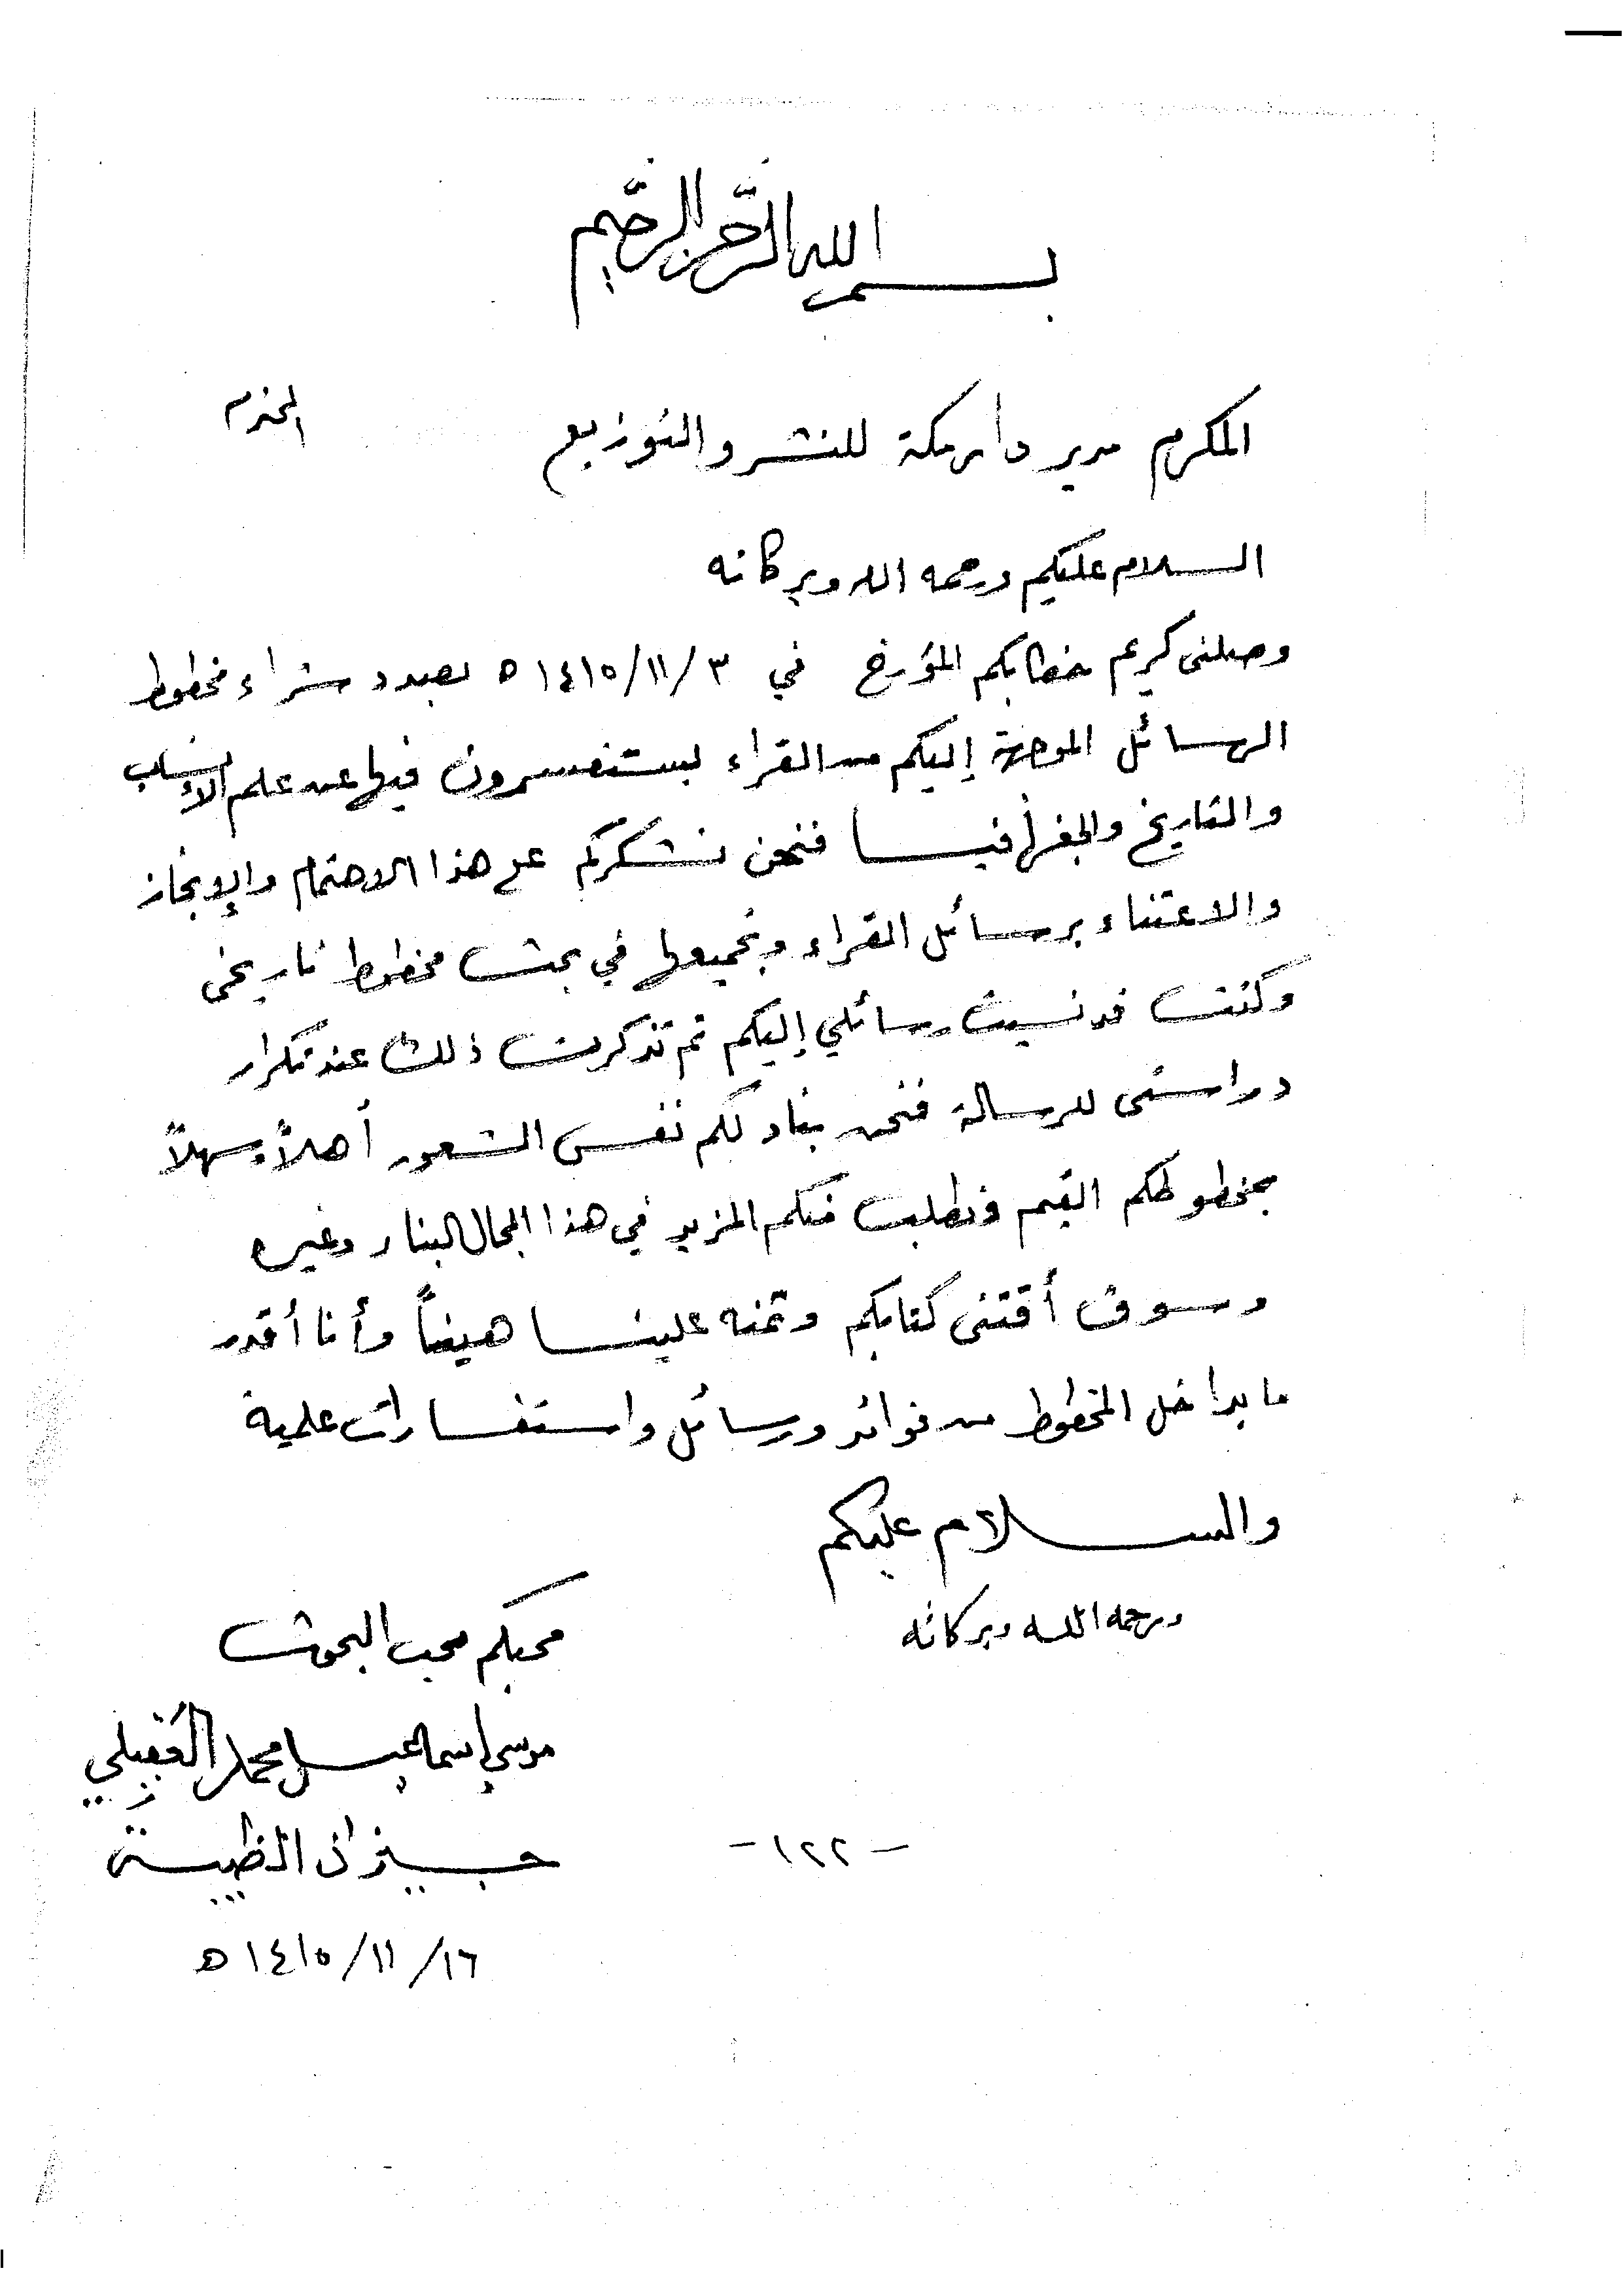 بسم الله الرحمن الرحيم
المكرم مدير دار مكة للنشر والتوزيع المحترم
السلام عليكم ورحمه الله وبركاته
وصلنى كريم خطابكم المؤرخ في ٣/١١/١٤١٥ ه بصدد شراء مخطوط
الرسائل الموجهة إليكم من القراء يستفسرون فيها عن علم الأنساب
والتاريخ والجغرافيا فنحن نشكركم على هذا الاهتمام والإنجاز
والاعتناء برسائل القراء وتجميعها في بحث مخطوط تاريخى
وكنت قد نسيت رسائلي إليكم ثم تذكرت ذلك عند تكرار
دراستى للرسالة فنحن نبادلكم نفس الشعور أهلاً وسهلاً
بمخطوطكم القيم ونطلب منكم المزيد في هذا المجال البناء وغيره
وسوف أقتنى كتابكم وثمنه علينا هيناً وأنا أقدر
ما بداخل المخطوط من فوائد ورسائل واستفسارات علمية
والسلام عليكم
ورحمه الله وبركاته
محبكم محب البحوث
موسى إسماعيل محمد العقيلي
جيزان الظبية
-١٢٢-
١٦/١١/١٤١٥ ه